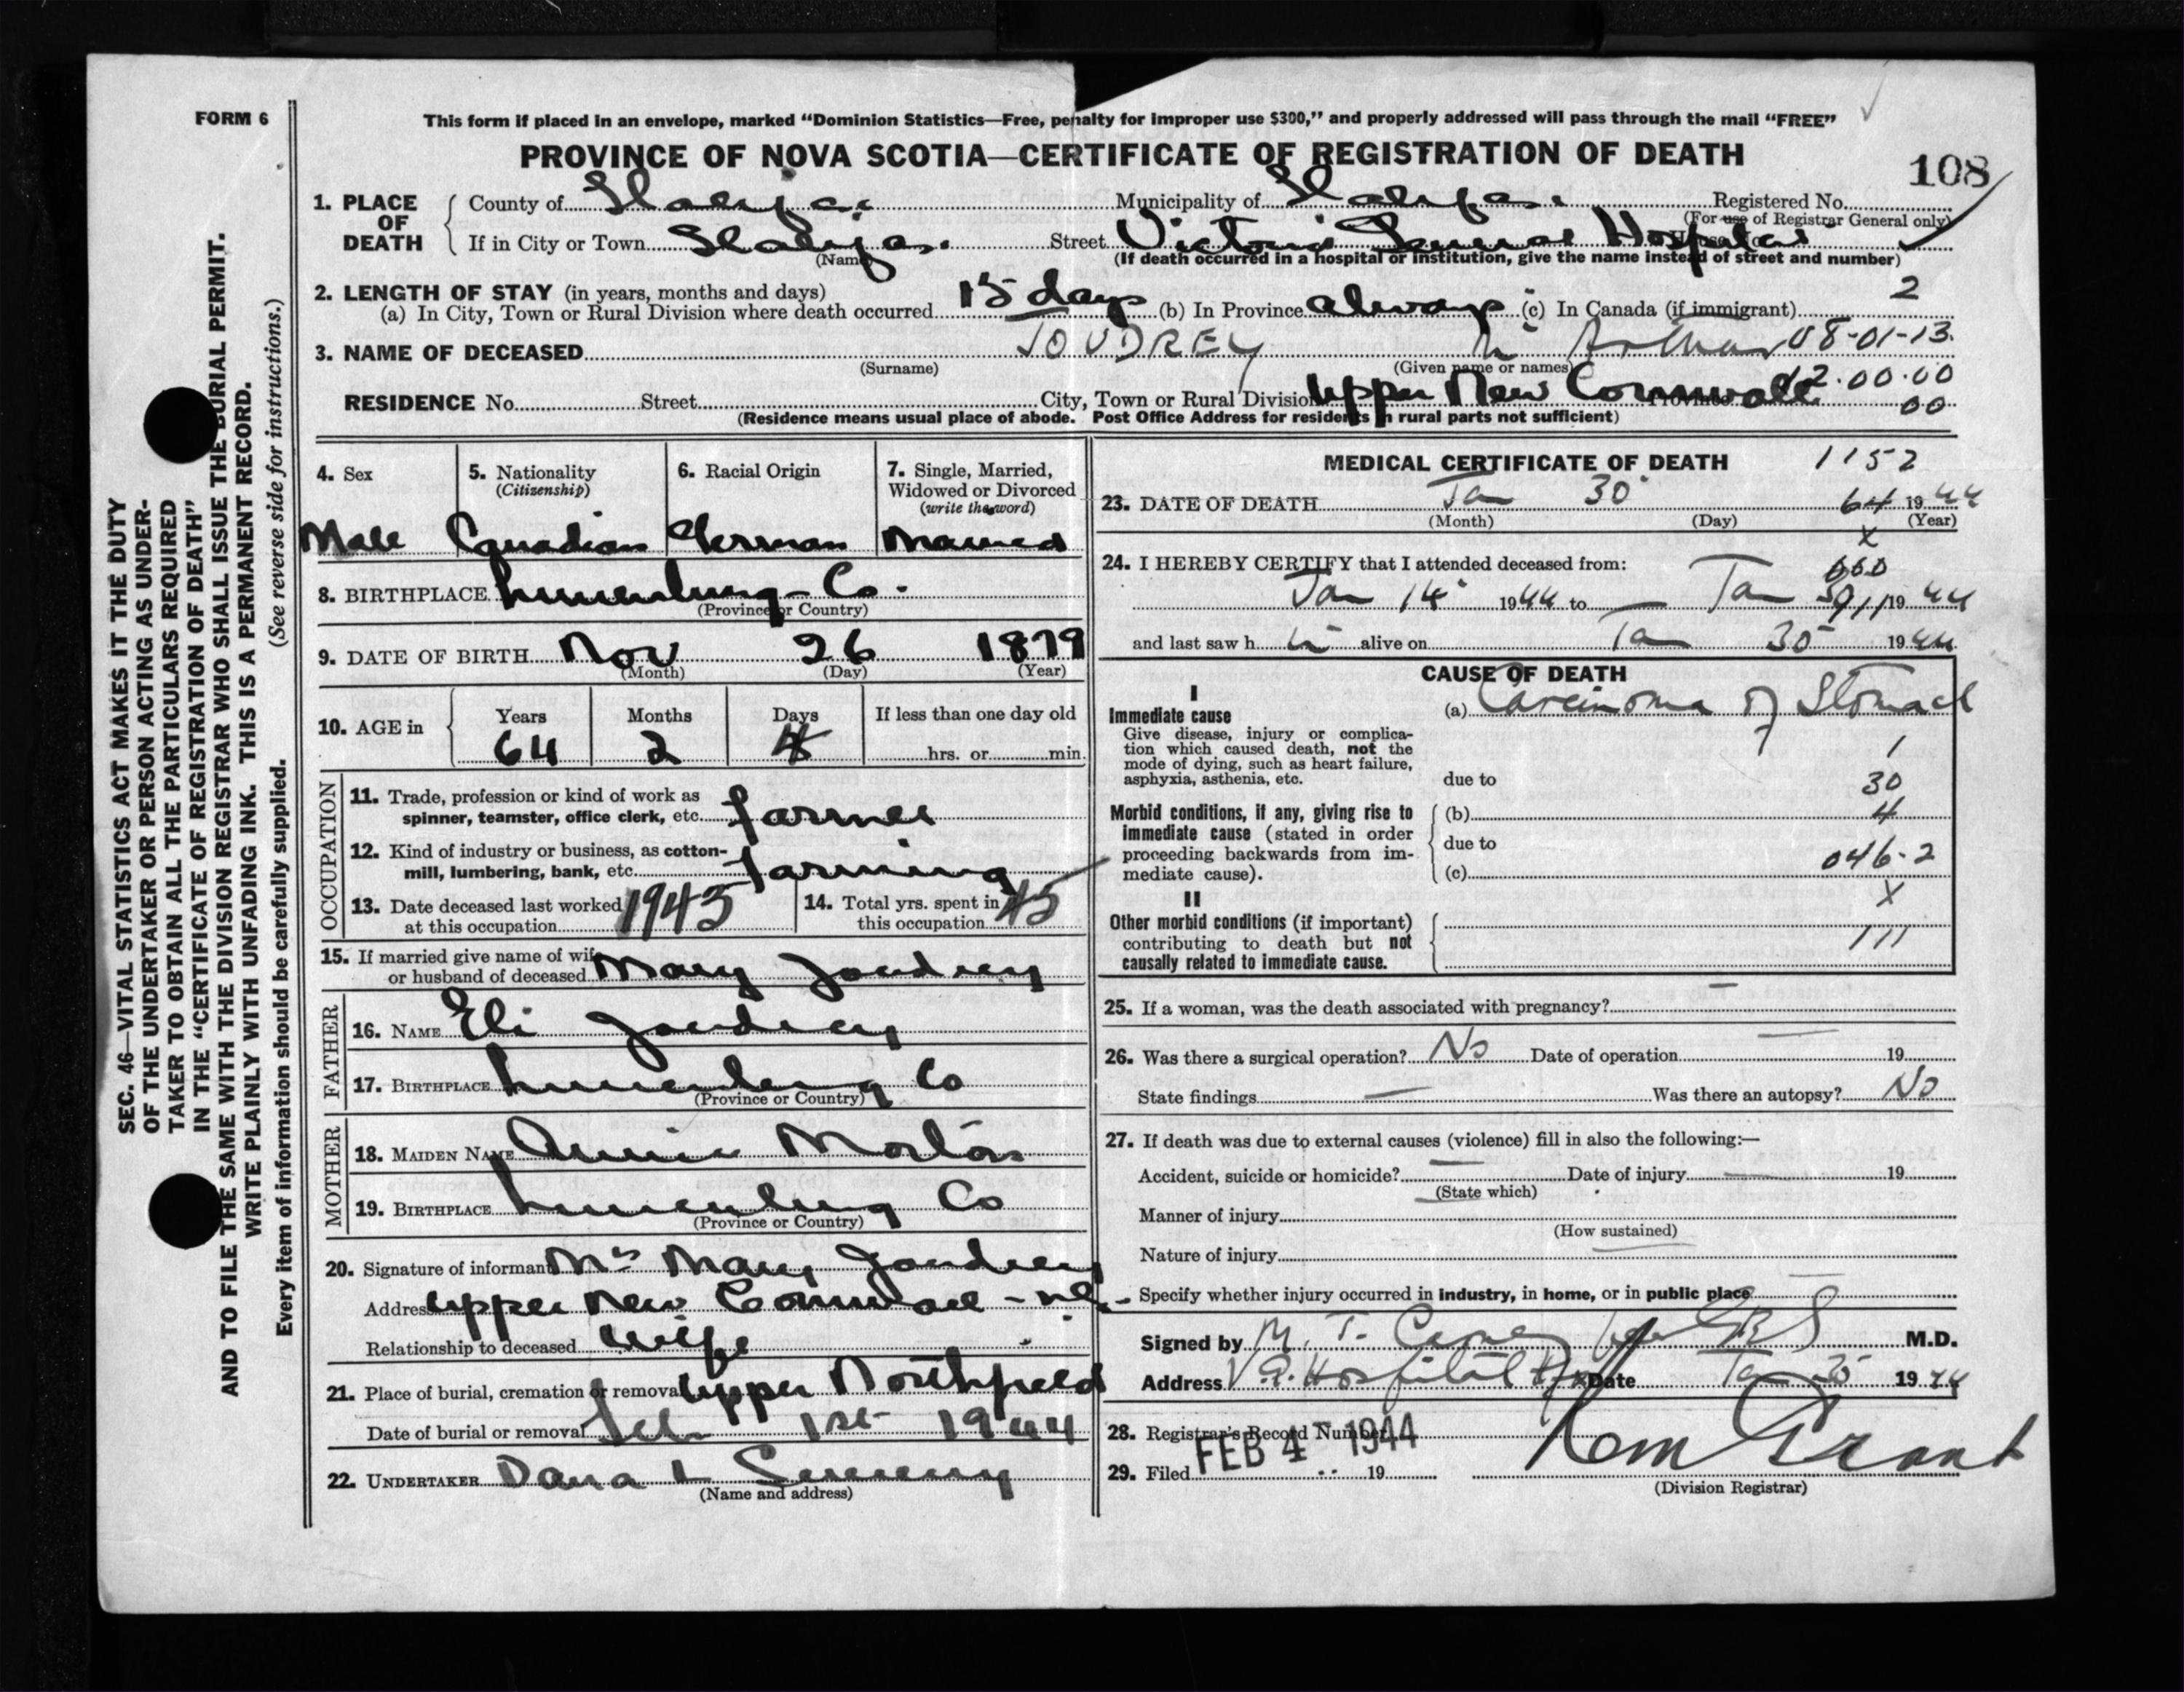 FORM 6
This form if placed in an envelope, marked "Dominion Statistics—Free, penalty for improper use $300," and properly addressed will pass through the mail "FREE"
PROVINCE OF NOVA SCOTIA—CERTIFICATE OF REGISTRATION OF DEATH
108
1. PLACE OF DEATH
County of Halifax Municipality of Halifax Registered No.
(For use of Registrar General only)
If in City or Town Halifax Street Victoria General Hospital
(Name)
(If death occurred in a hospital or institution, give the name instead of street and number)
2. LENGTH OF STAY (in years, months and days) 2
(a) In City, Town or Rural Division where death occurred 15 days (b) In Province always (c) In Canada (if immigrant)
3. NAME OF DECEASED JOUDREY Arthur 08-01-13
(Surname) (Given name or names)
12.00.00
RESIDENCE No. Street City, Town or Rural Division Upper New Cornwall 00
(Residence means usual place of abode. Post Office Address for residents in rural parts not sufficient)
4. Sex
5. Nationality
(Citizenship)
6. Racial Origin
7. Single, Married,
Widowed or Divorced
(write the word)
Male Canadian German Married
8. BIRTHPLACE Lunenburg Co.
(Province or Country)
9. DATE OF BIRTH Nov 26 1879
(Month) (Day) (Year)
10. AGE in
Years Months Days If less than one day old
64 2 4 hrs. or min.
OCCUPATION
11. Trade, profession or kind of work as
spinner, teamster, office clerk, etc. farmer
12. Kind of industry or business, as cotton-
mill, lumbering, bank, etc. farming
13. Date deceased last worked
at this occupation 1943
14. Total yrs. spent in
this occupation 45
15. If married give name of wife
or husband of deceased Mary Joudrey
FATHER
16. NAME Eli Joudrey
17. BIRTHPLACE Lunenburg Co
(Province or Country)
MOTHER
18. MAIDEN NAME Annie
19. BIRTHPLACE Lunenburg Co
(Province or Country)
20. Signature of informant Mrs Mary Joudrey
Address Upper New Cornwall - N.S.
Relationship to deceased Wife
21. Place of burial, cremation or removal Upper Northfield
Date of burial or removal Feb 1st 1944
22. UNDERTAKER Dana L Sweeny
(Name and address)
MEDICAL CERTIFICATE OF DEATH 1152
23. DATE OF DEATH Jan 30 64 1944
(Month) (Day) (Year)
x
24. I HEREBY CERTIFY that I attended deceased from:
Jan 14 1944 to Jan 1944
and last saw h alive on Jan 30 1944
CAUSE OF DEATH
I
Immediate cause
Give disease, injury or complica-
tion which caused death, not the
mode of dying, such as heart failure,
asphyxia, asthenia, etc.
(a) Carcinoma of Stomach
1
due to
30
Morbid conditions, if any, giving rise to
immediate cause (stated in order
proceeding backwards from im-
mediate cause).
(b) 4
due to
046-2
(c)
X
II
Other morbid conditions (if important)
contributing to death but not
causally related to immediate cause.
111
25. If a woman, was the death associated with pregnancy? —
26. Was there a surgical operation? No Date of operation — 19
State findings — Was there an autopsy? No
27. If death was due to external causes (violence) fill in also the following:—
Accident, suicide or homicide? — Date of injury — 19
(State which)
Manner of injury
(How sustained)
Nature of injury
Specify whether injury occurred in industry, in home, or in public place
Signed by M. T. M.D.
Address V G. Hospital Hfx Date Jan 30 1944
28. Registrar's Record Number
FEB 4 1944
29. Filed 19
(Division Registrar)
SEC. 46—VITAL STATISTICS ACT MAKES IT THE DUTY
OF THE UNDERTAKER OR PERSON ACTING AS UNDER-
TAKER TO OBTAIN ALL THE PARTICULARS REQUIRED
IN THE "CERTIFICATE OF REGISTRATION OF DEATH"
AND TO FILE THE SAME WITH THE DIVISION REGISTRAR WHO SHALL ISSUE THE BURIAL PERMIT.
WRITE PLAINLY WITH UNFADING INK. THIS IS A PERMANENT RECORD.
Every item of information should be carefully supplied. (See reverse side for instructions.)